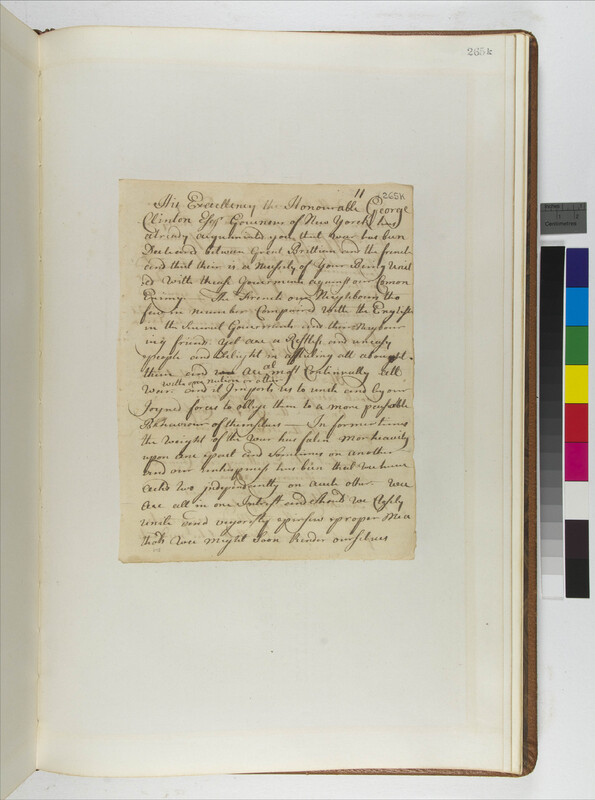 265k
11
265K
His Excellency the Honourable George
Clinton Esqr Governour of New York has
already acquainted you that war has been
Declared between Great Brittain and the french
and that there is a Nessisity of Your Being Unit
ed with these Goverments against our Comon
Enemy — The French our Neighbours tho
few in number Compaired with the English
in the Several Goverments and there Neybour
ing friends Yet are a Restless and uneasy
people and Delight in afflicting all about
them and are al most Continually att
with one nation or other
War and it Imports us to unite and by our
Joyned forces to oblige them to a more peasable
Behaviour of themselves — In former times
the Weight of the War has falen mor heavily
upon one part and Somtimes on another
and our unhappiness has bien that we have
acted two independently on each other — wee
are all in one Intrest and should we Closely
unite and vigorosly persew proper Mea
thods wee might Soon Render ourselves